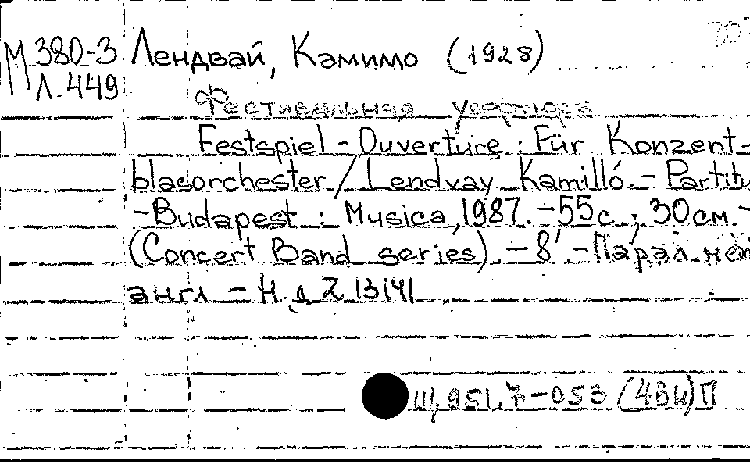 М 380-3 Лендвай, Камилло (1928)
Л.449
Фестивальная увертюра
Festspiel-Ouvertüre : Für Konzent-
blasorchester / Lendvay Kamilló. - Partitu
-Budapest : Musica, 1987. - 55 с.; 30 см. -
(Concert Band series). - 8'. - Парал. нем
англ - Н.д Z.13141
Ш,951.7-053 (4ВЫ)П